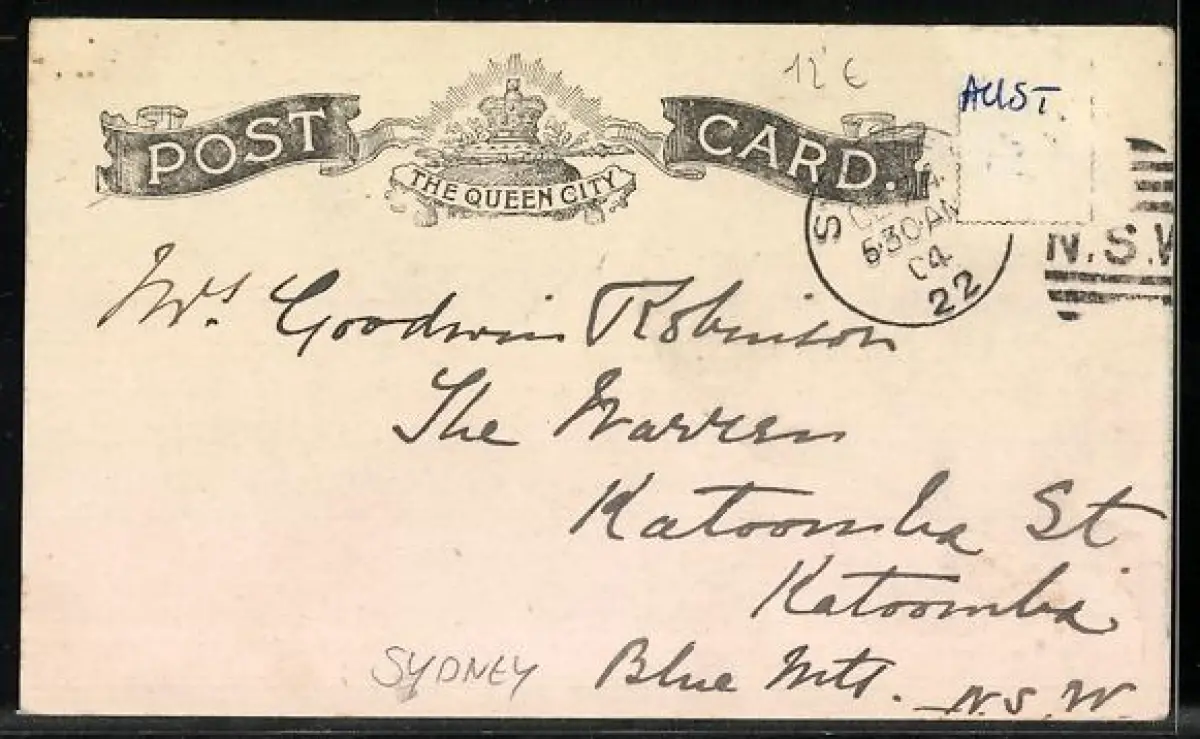 12 €
AUST
POST CARD.
THE QUEEN CITY
S
5·30·AM
04
22
N.S.W
Mrs. Goodwin Robinson
The Warren
Katoomba St
Katoomba
Blue Mts. N.S.W.
SYDNEY